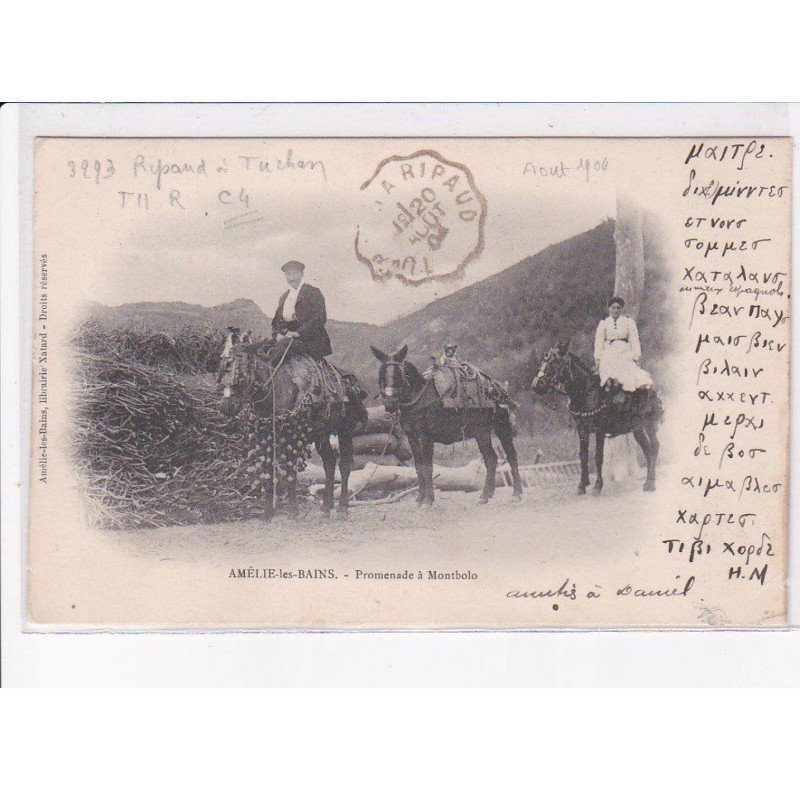 3293 Ripaud à Tuchan
TII R C4
Aout 1904
A RIPAUD
20
AOUT
04
Amélie-les-Bains, librairie Xatard - Droits réservés
μαιτρε.
ετ νουσ
σομμεσ
χαταλανσ
ou mieux espagnols
βεαν παυσ
μαισ βιεν
βιλαιν
αχχεντ.
μερχι
δε βοσ
αιμαβλεσ
χαρτεσ.
τιβι χορδε
H. M
AMÉLIE-les-BAINS. - Promenade à Montbolo
amitiés à Daniel